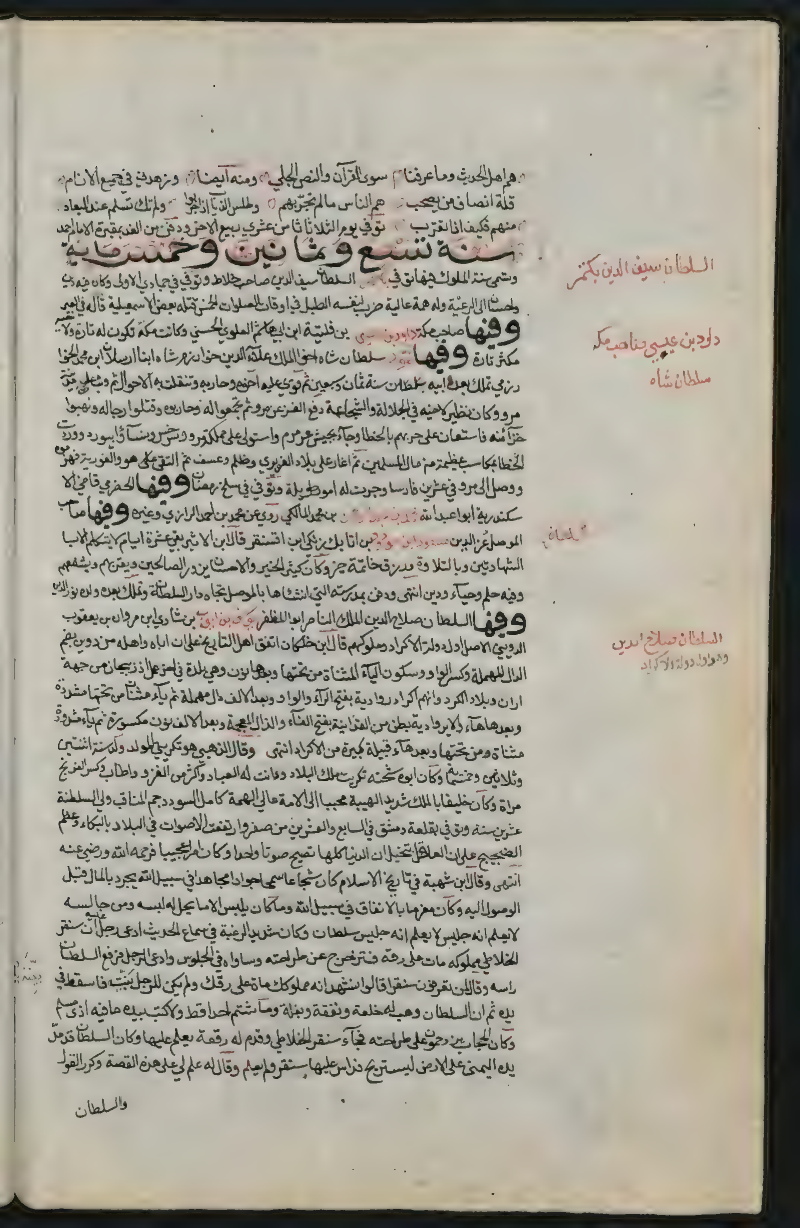 هم اهل الحديث وما عرفنا سوى القرآن والنص الجلي ومنه أيضا وزهدني في جميع الانام
قلة انصاف من يصحب هم الناس ما لم تجربهم وطلس الذئاب اذا جربوا ولم تك تسلم عند البعاد
منهم فكيف اذا تقرب توفي يوم الثلاثا ثامن عشري ربيع الاخر ودفن من الغد بمقبرة الامام احمد
سنة تسع وثمانين وخمسماية
وتسمى سنة الملوك فيها توفي السلطان سيف الدين صاحب خلاط وتوفي في جمادى الاولى وكان فيه دين
واحسان الى الرعية وله همة عالية ضرب لنفسه الطبل في اوقات الصلوات الخمس قتله بعض الاسمعيلية قاله في العبر
وفيها صاحب مكة داود بن عيسى بن فليتة ابن ابي هاشم العلوي الحسني وكانت مكة تكون له تارة ولاخيه
مكثر تارة وفيها سلطان شاه اخو الملك علاء الدين خوارزمشاه ابنا ارسلان ابن محمد الخوا
رزمي تملك بعد ابيه سنة ثمان وستين ثم قوي عليه اخوه وحاربه وتنقلت به الاحوال ثم وثب على مدينة
مرو وكان نظير لاخيه في الجلالة والشجاعة دفع الغز عن مرو ثم تجمعوا له وحاربوه وقتلوا رجاله ونهبوا
خزائنه فاستعان على حربهم بالخطا وجاء بجيش عرمرم واستولى على مملكة مرو وسرخس ونسا وابيورد وردت
الخطا بمكاسب عظيمة من مال المسلمين ثم اغار على بلاد الغوري وظلم وعسف ثم التقى هو والغورية فهزموه
ووصل الى مرو في عشرين فارسا وجرت له امور طويلة وتوفي في سلخ رمضان وفيها الحضرمي قاضي الا
سكندرية ابو عبد الله بن محمد المالكي روى عن محمد بن احمد الرازي وغيره وفيها صاحب
الموصل عز الدين مسعود بن مودود بن اتابك زنكي ابن اقسنقر قال ابن الاثير بقي عشرة ايام لا يتكلم الا با
لشهادتين وبالتلاوة ورزق خاتمة خير وكان كثير الخير والاحسان يزور الصالحين ويقربهم ويشفعهم
وفيه حلم وحياء ودين انتهى ودفن بمدرسته التي انشاها بالموصل تجاه دار السلطنة وتملك بعده ولده نور الدين
وفيها السلطان صلاح الدين الملك الناصر ابو المظفر يوسف بن ايوب بن شادي ابن مروان بن يعقوب
الدويني الاصل اول دولة الاكراد وملوكهم قال ابن خلكان اتفق اهل التاريخ على ان اباه واهله من دوين بضم
الدال المهملة وكسر الواو وسكون الياء المثناة من تحتها وبعدها نون وهي بلدة في اخر عمل اذربيجان من جهة
اران وبلاد الكرج وانهم اكراد روادية بفتح الراء والواو وبعد الالف دال مهملة ثم ياء مثناة من تحتها مشددة
وبعدها هاء والروادية بطن من الهذانية بفتح الهاء والذال المعجمة وبعد الالف نون مكسورة ثم ياء مشددة
مثناة من تحتها وبعدها هاء قبيلة كبيرة من الاكراد انتهى وقال الذهبي هو تكريتي المولد ولد سنة اثنتين
وثلاثين وخمسمائة وكان ابوه شحنة تكريت ملك البلاد ودانت له العباد واكثر من الغزو واطاب وكسر الفرنج
مرات وكان خليقا بالملك شديد الهيبة محببا الى الامة عالي الهمة كامل السودد جم المناقب ولي السلطنة
عشرين سنة وتوفي بقلعة دمشق في السابع والعشرين من صفر وارتفعت الاصوات في البلاد بالبكاء وعظم
الضجيج حتى ان العاقل ليتخيل ان الدنيا كلها تصيح صوتا واحدا وكان امرا عجيبا فرحمه الله ورضي عنه
انتهى وقال ابن شهبة في تاريخ الاسلام كان شجاعا سمحا جوادا مجاهدا في سبيل الله يجود بالمال قبل
الوصول اليه وكان مغرما بالانفاق في سبيل الله وما كان يلبس الا ما يحل له لبسه ومن جالسه
لا يعلم انه جليس لا يعلم انه جليس سلطان وكان شديد الرغبة في سماع الحديث ادعى رجل ان سنقر
الخلاطي مملوكه مات على رقه فتزحزح عن طراحته وساواه في الجلوس وادعى الرجل فرفع السلطان
راسه وقال من تعرفون سنقرا قالوا نشهد انه مملوكك مات على رقك ولم يكن للرجل بينة فاسقط في
يده ثم ان السلطان وهب له خلعة ونفقة وبغلة وما شتم احدا قط ولا كتب بيده ما فيه اذى مسلم
وكان الحجاب يزدحمون على طراحته فجاء سنقر الخلاطي وقدم له رقعة يعلم عليها وكان السلطان قد مد
يده اليمنى على الارض ليستريح فداس عليها سنقر ولم يعلم وقال له علم لي على هذه القصة وكرر القول
والسلطان
السلطان سيف الدين بكتمر
داود بن عيسى صاحب مكة
سلطان شاه
السلطان صلاح الدين
وهو اول دولة الاكراد